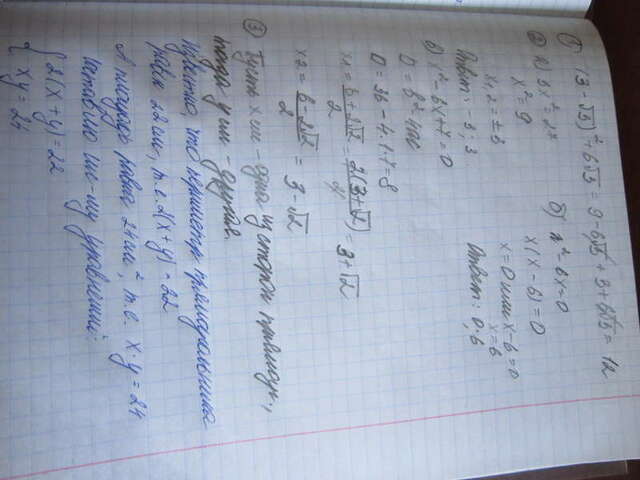 ① (3 - √3)² + 6√3 = 9 - 6√3 + 3 + 6√3 = 12
② а) 3x² = 27
x² = 9
x1,2 = ±3
Ответ: -3; 3
б) x² - 6x = 0
x(x - 6) = 0
x = 0 или x - 6 = 0
x = 6
Ответ: 0; 6
в) x² - 6x + 7 = 0
D = b² - 4ac
D = 36 - 4·1·7 = 8
x1 = 6 + 2√2 / 2 = 2(3 + √2) / 2 = 3 + √2
x2 = 6 - 2√2 / 2 = 3 - √2
③ Пусть x см - одна из сторон прямоуг.,
тогда y см - другая.
Известно, что периметр прямоугольника
равен 22 см, т.е. 2(x + y) = 22
А площадь равна 24 см², т.е. x · y = 24
Составим сис-му уравнений:
{ 2(x + y) = 22
xy = 24